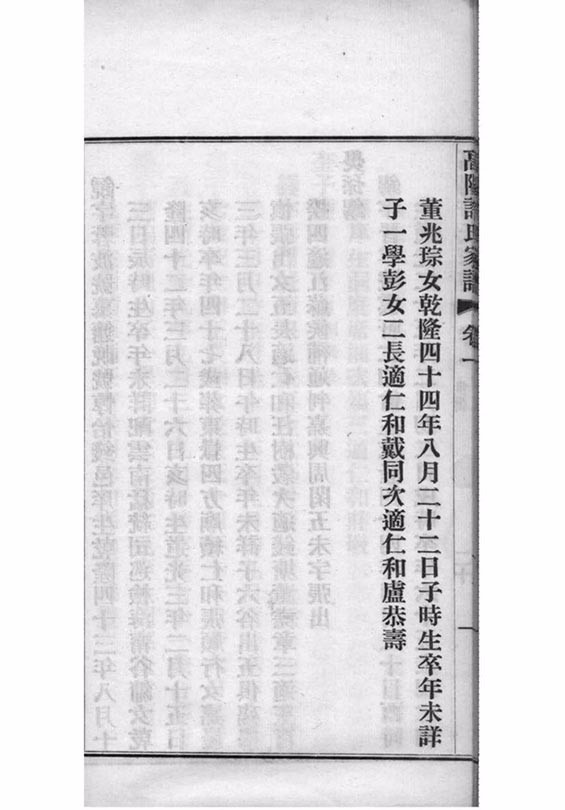 高陽許氏家譜 卷一
董兆琮女乾隆四十四年八月二十二日子時生卒年未詳
子一學彭女二長適仁和戴同次適仁和盧恭壽